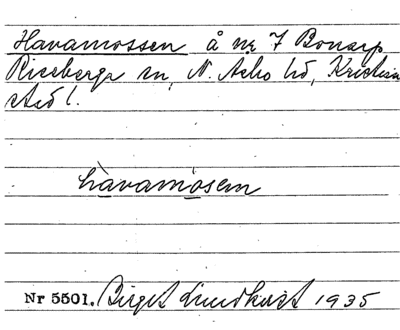 Havamossen å nr 7 Bonarp
Riseberga sn, N. Åsbo hd, Kristian
stads l.
hàvamósem
Nr 5501. Birgit Lundkvist 1935